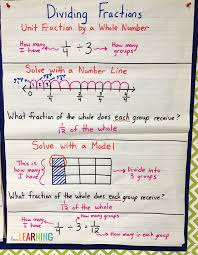 Dividing Fractions
Unit Fraction by a Whole Number
How many I have → 1/4 ÷ 3 ← How many groups
Solve with a Number Line
What fraction of the whole does each group receive?
1/12 of the whole
Solve with a Model
This is how many I have
Divide into 3 groups
What fraction of the whole does each group receive?
1/12 of the whole
How many groups
How many I have → 1/4 ÷ 3 = 1/12
How many in each group
LEARNING